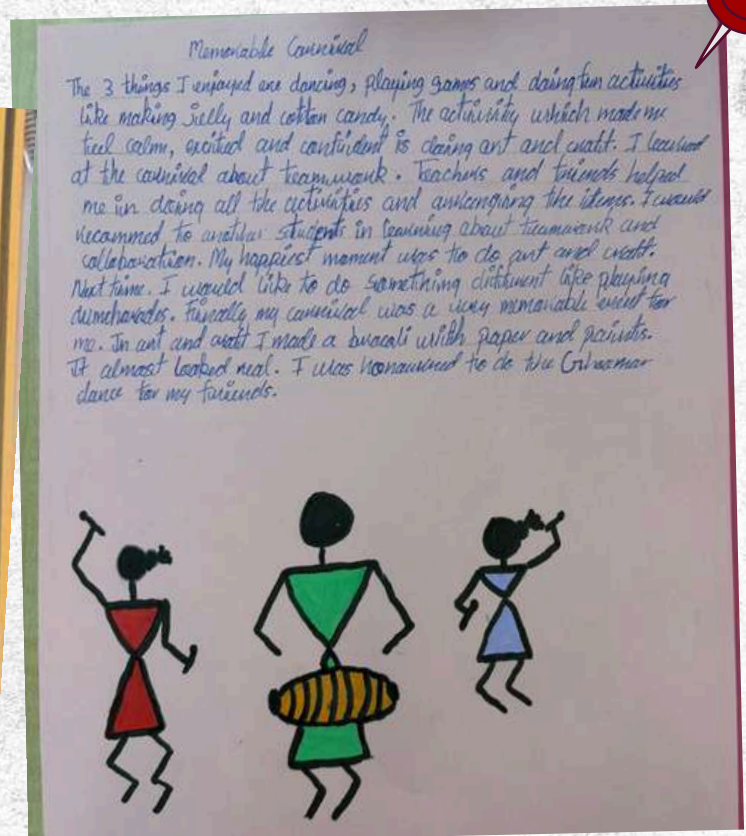 Memorable Carnival
The 3 things I enjoyed are dancing, playing games and doing fun activities
like making jelly and cotton candy. The activity which made me
feel calm, excited and confident is doing art and craft. I learned
at the carnival about teamwork. Teachers and friends helped
me in doing all the activities and arrenging the items. I would
recommed to another students in learning about teamwork and
collaboration. My happiest moment was to do art and craft.
Next time. I would like to do something different like playing
dumcharades. Finally my carnival was a very memorable event for
me. In art and craft I made a brocoli with paper and paints.
It almost looked real. I was honoured to do the Ghoomar
dance for my friends.